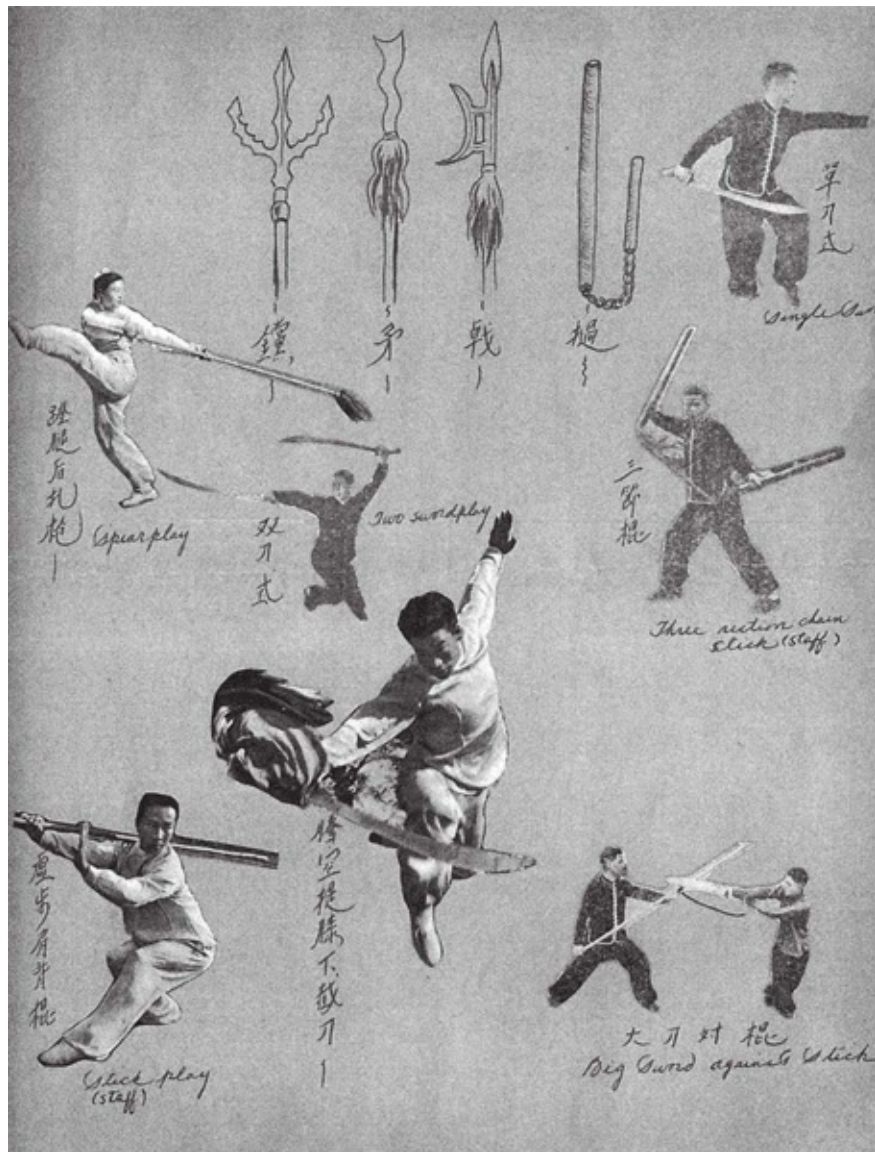 矛
戟
單刀式
Single Sw
踁腿后扎枪
Spear play
双刀式
Two swordplay
三節棍
Three section chain
stick (staff)
虚步肩背棍
Stick play
(staff)
腾空提膝下截刀
大刀对棍
Big Sword against Stick